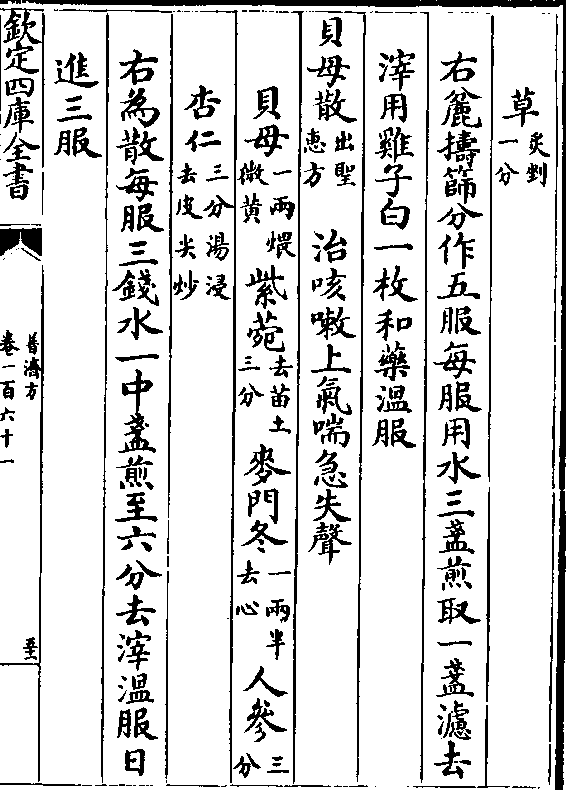 草炙剉一分
右麄擣篩分作五服每服用水三盞煎取一盞濾去
滓用雞子白一枚和藥溫服
貝母散出聖惠方 治咳嗽上氣喘急失聲
貝母一兩煨微黄 紫菀去苗土三分 麥門冬一兩半去心 人參三分
杏仁三分湯浸去皮尖炒
右為散每服三錢水一中盞煎至六分去滓溫服日
進三服
欽定四庫全書
普濟方
卷一百六十一